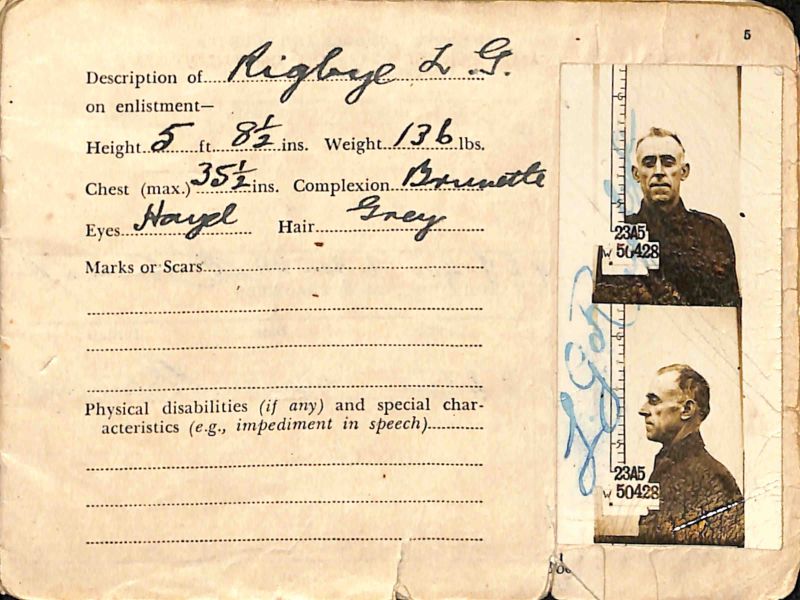 5
Description of Rigbye L G.
on enlistment—
Height 5 ft. 8½ ins. Weight 136 lbs.
Chest (max.) 35½ ins. Complexion Brunette
Eyes Hayd Hair Grey
Marks or Scars
Physical disabilities (if any) and special char-
acteristics (e.g., impediment in speech)
23A5
W 50428
23A5
W 50428
L G Rigbye